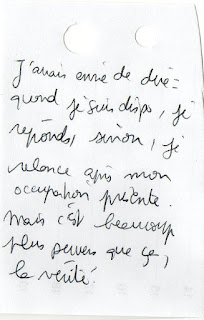 J'avais envie de dire =
quand je suis dispo, je
réponds, sinon, je
relance après mon
occupation présente.
Mais c'est beaucoup
plus pervers que ça,
la vérité.